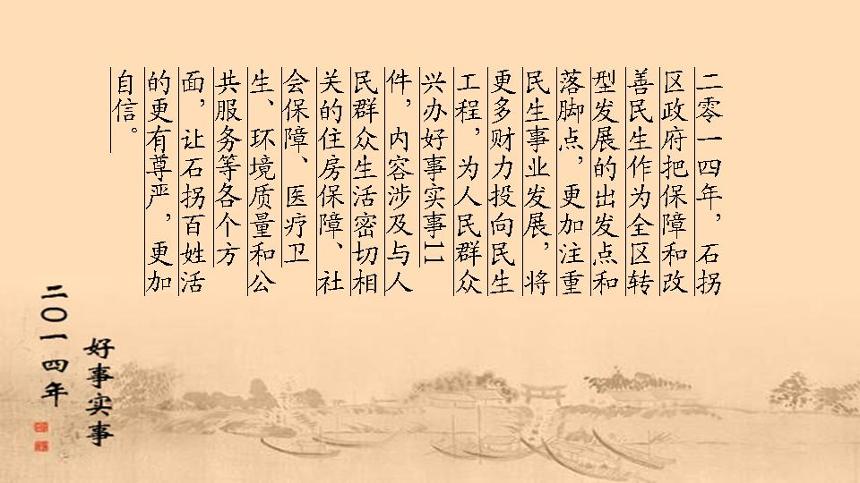 二零一四年，石拐
区政府把保障和改
善民生作为全区转
型发展的出发点和
落脚点，更加注重
民生事业发展，将
更多财力投向民生
工程，为人民群众
兴办好事实事11
件，内容涉及与人
民群众生活密切相
关的住房保障、社
会保障、医疗卫
生、环境质量和公
共服务等各个方
面，让石拐百姓活
的更有尊严，更加
自信。
好事实事
二〇一四年